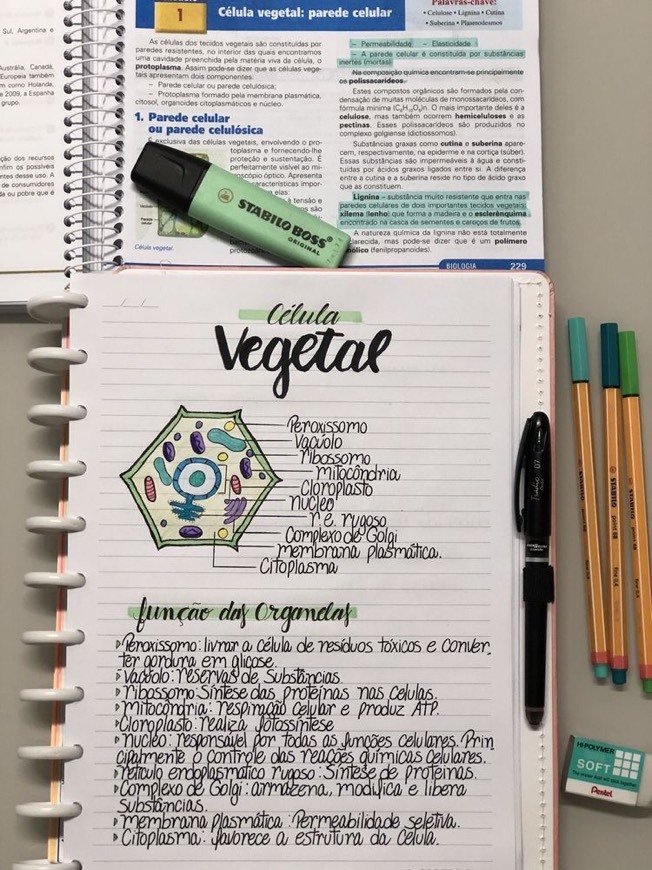 Sul, Argentina e
Austrália, Canadá,
Europeia também
om como Holanda,
e 2009, a Espanha
grupo.
ção dos recursos
de consumidores
da ou pobre que é
1
Célula vegetal: parede celular
Palavras-chave:
• Celulose • Lignina • Cutina
• Suberina • Plasmodesmos
As células dos tecidos vegetais são constituídas por
paredes resistentes, no interior das quais encontramos
uma cavidade preenchida pela matéria viva da célula, o
protoplasma. Assim pode-se dizer que as células vege-
tais apresentam dois componentes:
– Parede celular ou parede celulósica;
– Protoplasma formado pela membrana plasmática,
citosol, organoides citoplasmáticos e núcleo.
1. Parede celular
ou parede celulósica
É exclusiva das células vegetais, envolvendo o pro-
toplasma e fornecendo-lhe
proteção e sustentação. É
perfeitamente visível ao mi-
croscópio óptico. Apresenta
Célula vegetal.
– Permeabilidade – Elasticidade
– A parede celular é constituída por substâncias
inertes (mortas)
Na composição química encontram-se principalmente
os polissacarídeos.
Estes compostos orgânicos são formados pela con-
densação de muitas moléculas de monossacarídeos, com
fórmula mínima (C₆H₁₀O₅)n. O mais importante deles é a
celulose, mas também ocorrem hemiceluloses e as
pectinas. Esses polissacarídeos são produzidos no
complexo golgiense (dictiossomos).
Substâncias graxas como cutina e suberina apare-
cem, respectivamente, na epiderme e na cortiça (súber).
Essas substâncias são impermeáveis à água e consti-
tuídas por ácidos graxos ligados entre si. A diferença
entre a cutina e a suberina reside no tipo de ácido graxo
que as constituem.
Lignina – substância muito resistente que entra nas
paredes celulares de dois importantes tecidos vegetais:
xilema (lenho) que forma a madeira e o esclerênquima
encontrado na casca de sementes e caroços de frutos.
A natureza química da lignina não está totalmente
clarecida, mas pode-se dizer que é um polímero
nólico (fenilpropanoides).
BIOLOGIA 229
STABILO BOSS
ORIGINAL
Célula
Vegetal
Peroxissomo
Vacúolo
ribossomo
mitocôndria
Cloroplasto
núcleo
r.e. rugoso
Complexo de Golgi
membrana plasmática.
Citoplasma
função das Organelas
Peroxissomo: livrar a célula de resíduos tóxicos e conver-
ter gordura em glicose.
Vacúolo: reservas de substâncias.
ribossomo: Síntese das proteínas nas células.
Mitocôndria: respiração celular e produz ATP.
Cloroplasto: realiza fotossíntese
Núcleo: responsável por todas as funções celulares. Prin
cipalmente o controle das reações químicas celulares.
retículo endoplasmático rugoso: Síntese de proteínas.
Complexo de Golgi: armazena, modifica e libera
substâncias.
Membrana plasmática: Permeabilidade seletiva.
Citoplasma: favorece a estrutura da célula.
STABILO
STABILO
STABILO
HI-POLYMER
SOFT
Pentel